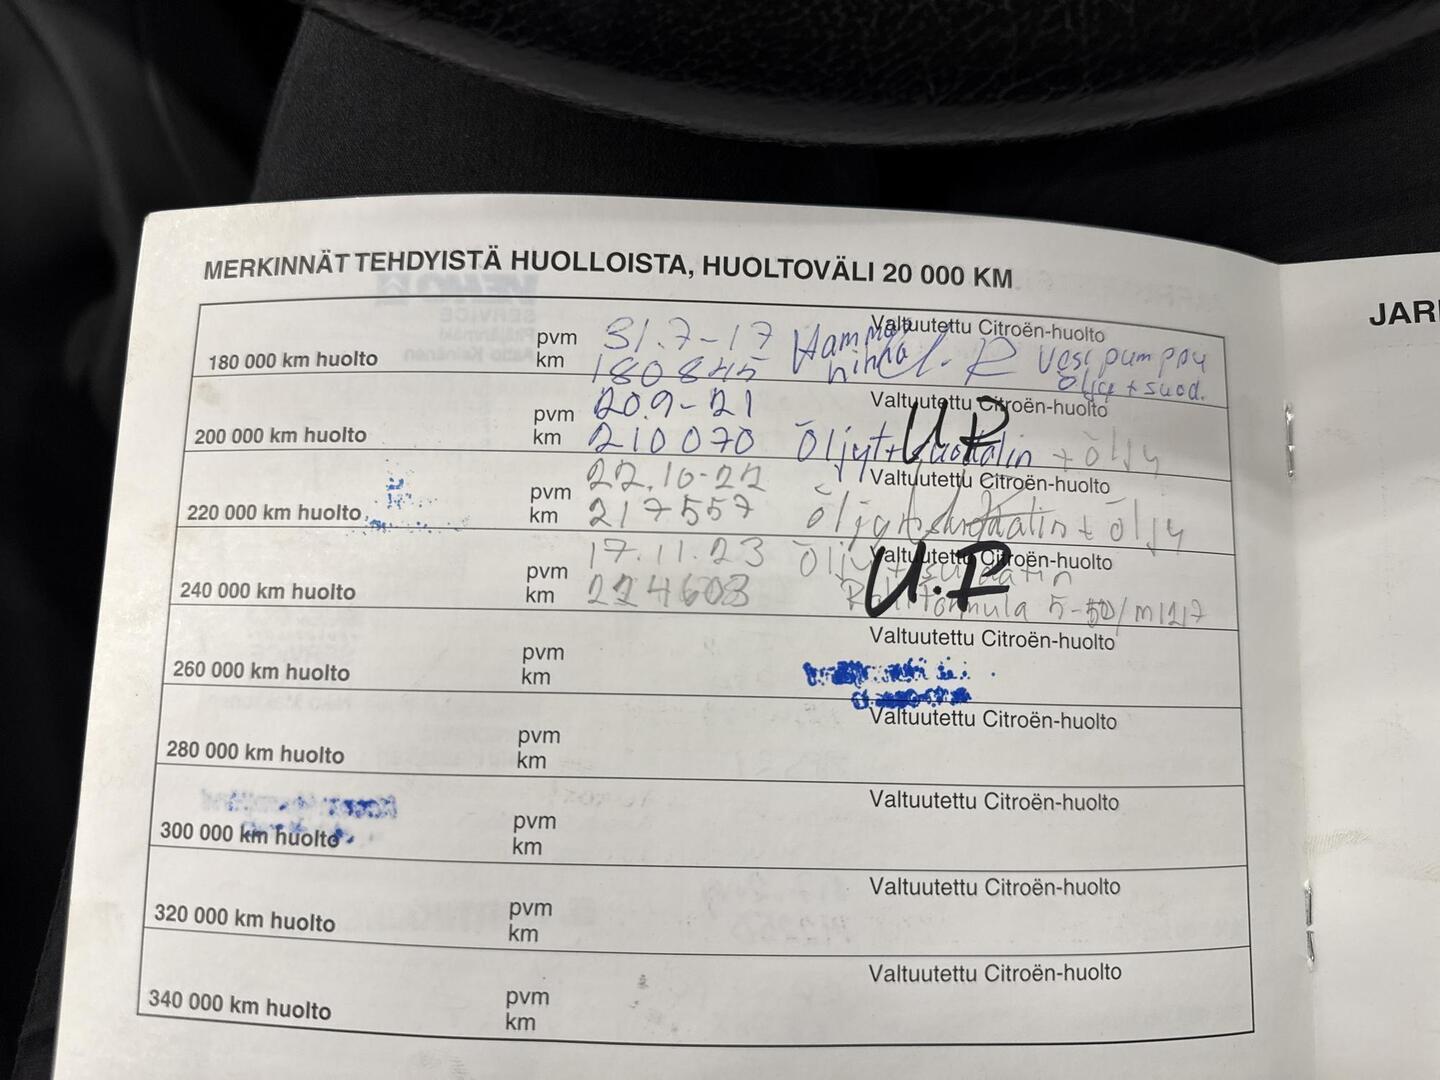 MERKINNÄT TEHDYISTÄ HUOLLOISTA, HUOLTOVÄLI 20 000 KM
JARR
180 000 km huolto
pvm 31.7-17
km 180845
Valtuutettu Citroën-huolto
Hamma hihna Vesi pumppu
Öljy + suod.
200 000 km huolto
pvm 20.9-21
km 210070
Valtuutettu Citroën-huolto
U.R
Öljyt + suodatin + öljy
220 000 km huolto
pvm 22.10-22
km 217557
Valtuutettu Citroën-huolto
Öljyt + suodatin + öljy
240 000 km huolto
pvm 17.11.23
km 224603
Valtuutettu Citroën-huolto
U.R
Öljy + suodatin
formula 5-50/
260 000 km huolto
pvm
km
Valtuutettu Citroën-huolto
280 000 km huolto
pvm
km
Valtuutettu Citroën-huolto
300 000 km huolto
pvm
km
Valtuutettu Citroën-huolto
320 000 km huolto
pvm
km
Valtuutettu Citroën-huolto
340 000 km huolto
pvm
km
Valtuutettu Citroën-huolto